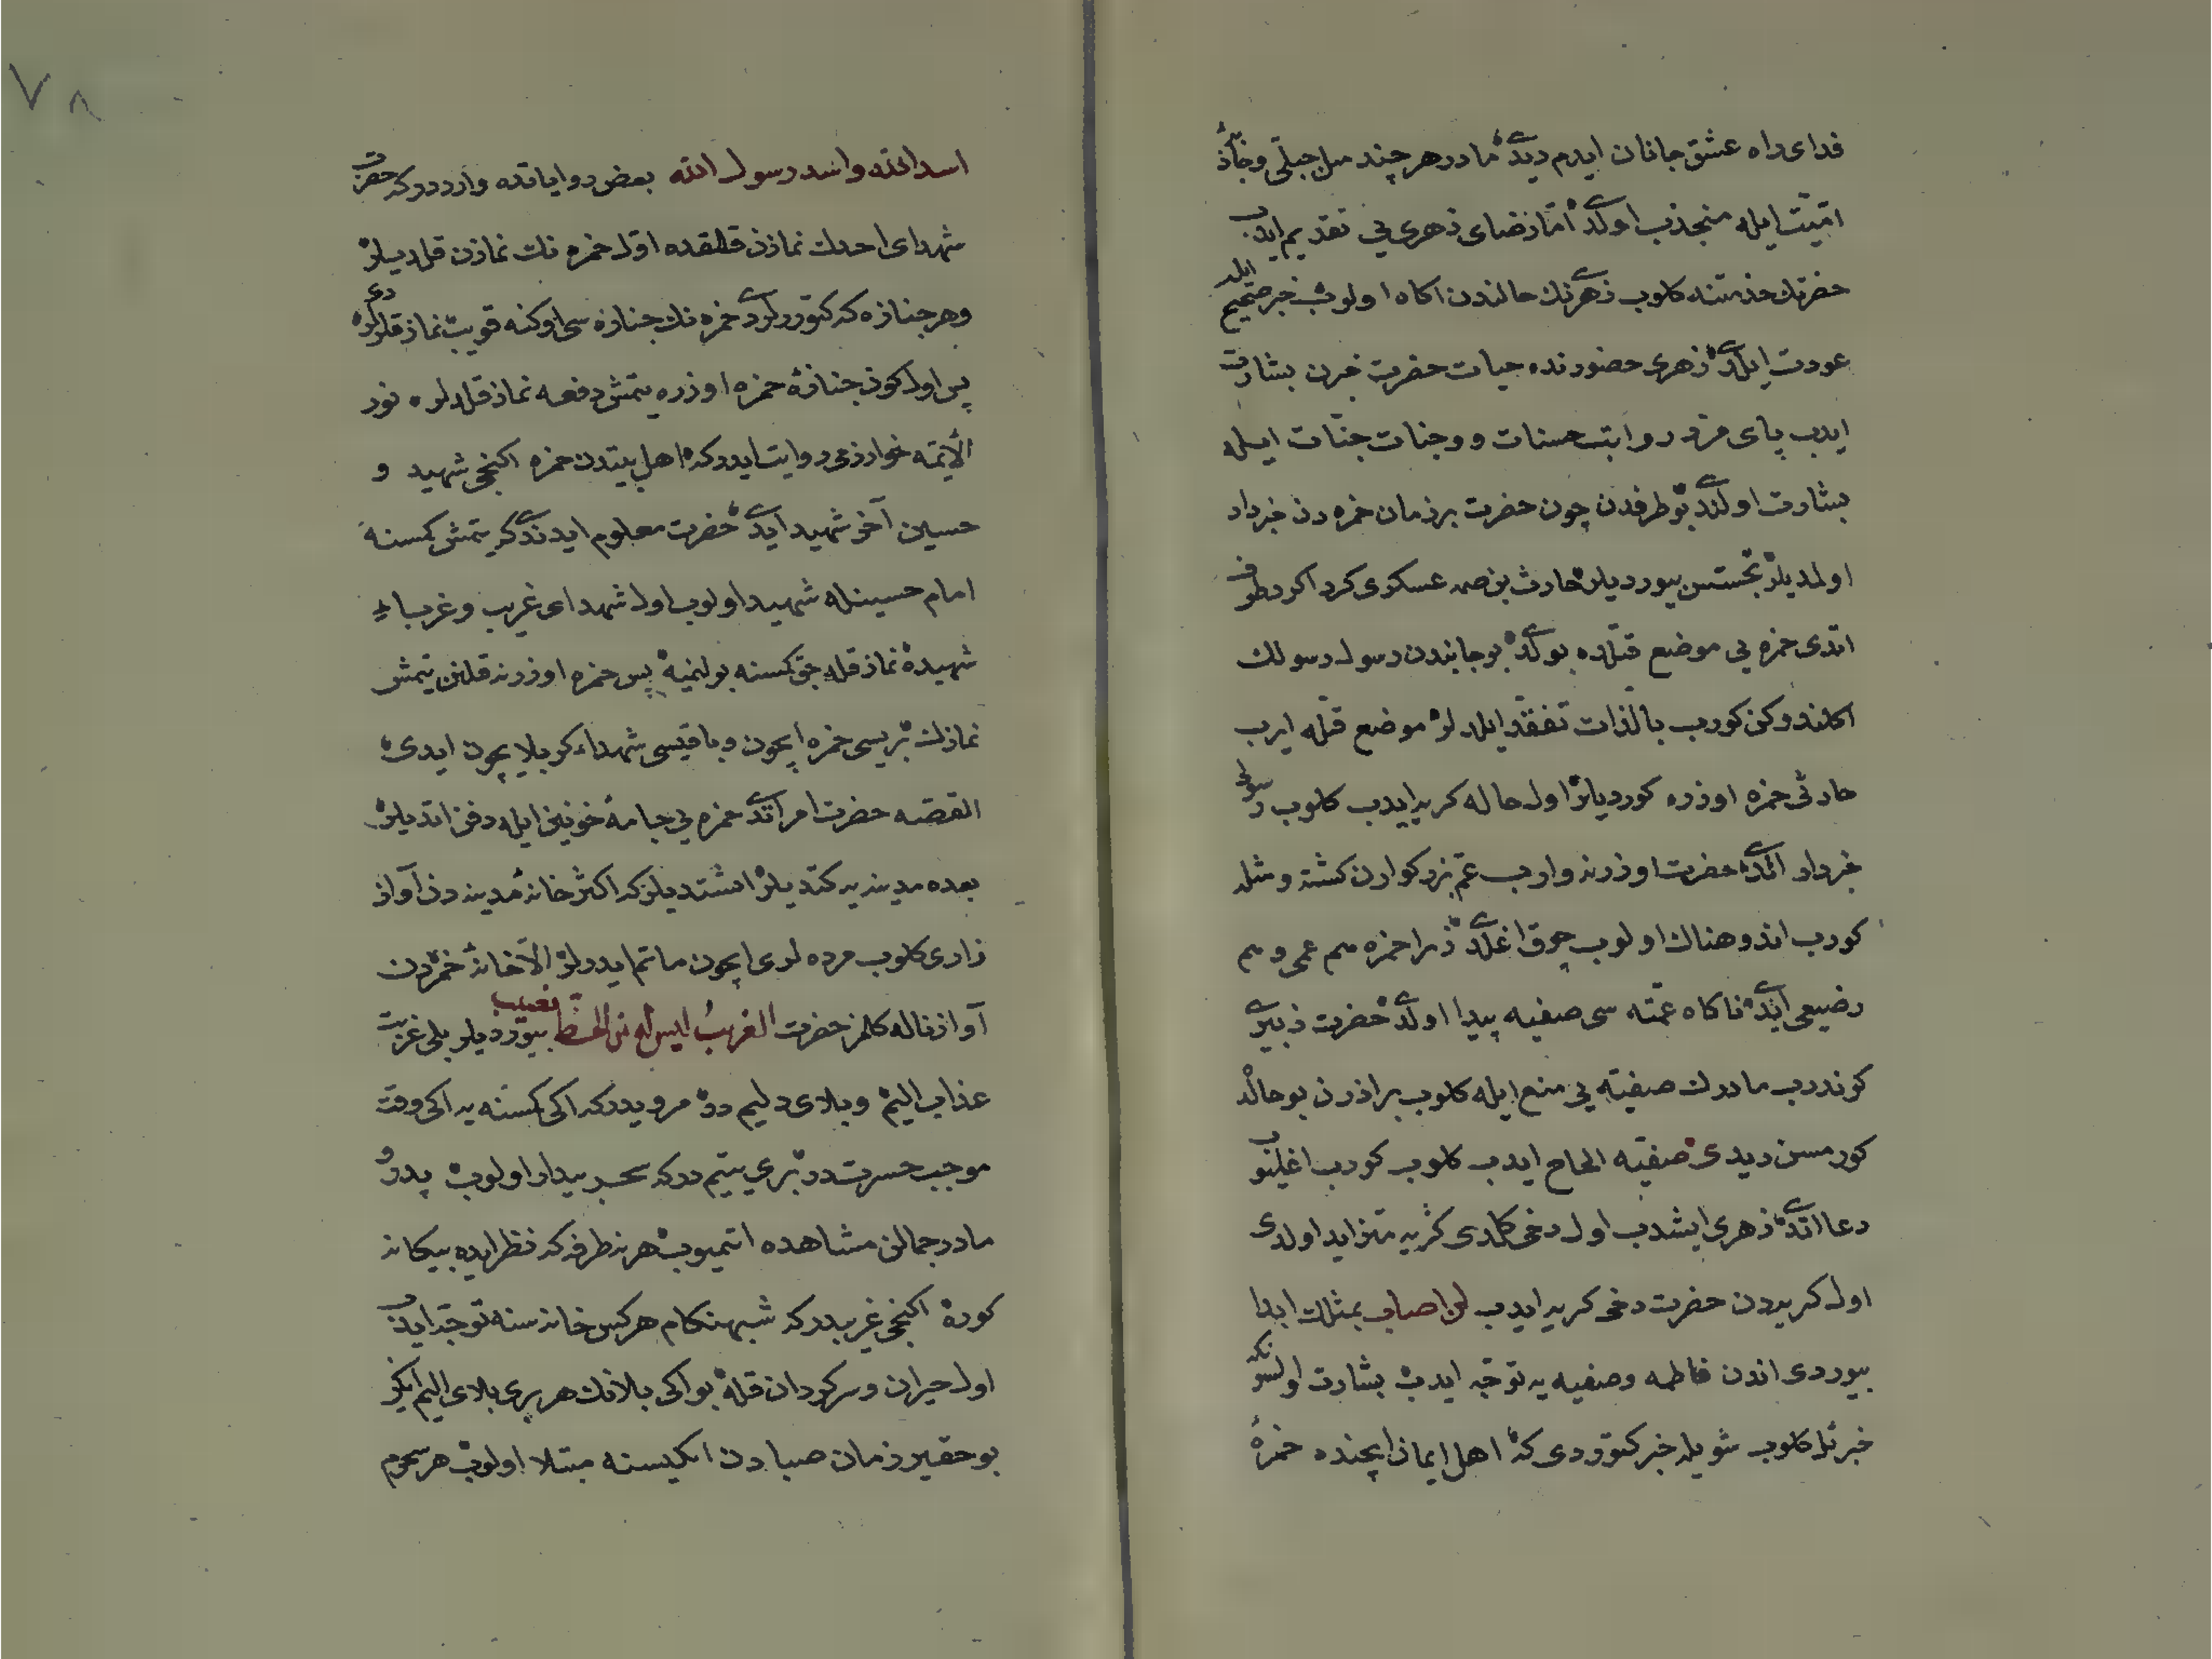 فدای راه عشق جانان ایدم دیدی مادر هر چند میل جبلّی وجاذبهٔ
امّیّت ایله منجذب اولدی امّا رضای زهری یی تقدیم ایدب
حضرتك خذمتنه کلوب زهرنك حالندن اکاه اولوب خبر صحیح ایله
عودت ایلدی زهری حضورنده حیات حضرت خبرن بشارت
ایدب پای مزد رواتب حسنات ووجنات جنّات ایله
بشارت اولندی بو طرفدن چون حضرت بر زمان حمزه دن خبردار
اولمدیلر تجسّس بیوردیلر حارث بن صمه عسکری کرداکرد طوف
اتدی حمزه یی موضع قتلده بولدی بو جانبدن رسول رسولك
اکلندوکن کورب بالذات تفقّد ایلدلر موضع قتله ایرب
حارثی حمزه اوزره کوردیلر اول حاله کریه ایدب کلوب رسولی
خبردار اتدی حضرت اوزرنه وارب عمّ بزرکوارن کشته ومثله
کورب اندوهناك اولوب چوق اغلدی زیرا حمزه هم عمی وهم
رضیعی ایدی ناکاه عمّته سی صفیه پیدا اولدی حضرت زبیری
کوندرب مادرك صفیّه یی منع ایله کلوب برادرن بو حالده
کورمسن دیدی صفیّه الحاح ایدب کلوب کورب اغلیوب
دعا اتدی زهری ایشدب اول دخی کلدی کریه متزاید اولدی
اول کریه دن حضرت دخی کریه ایدب لن اصاب بمثلك ابدا
بیوردی اندن فاطمه وصفیه یه توجّه ایدب بشارت اولسونکه
جبرئیل کلوب شویله خبر کتوردی که اهل ایمان ایچنده حمزهٔ
اسد الله واسد رسول الله بعض روایاتده وارددرکه حضرت
شهدای احدك نمازن قلدقده اوّل حمزه نك نمازن قلدیلر
وهر جنازه که کتوردلردی حمزه نك جنازه سی اوکنه قویب نماز قلرلردی
پس اول کون جنازهٔ حمزه اوزره یتمش دفعه نماز قلدلر نور
الأئمّه خوارزمی روایت ایدرکه اهل بیتدن حمزه اکنجی شهید و
حسین آخر شهید ایدی حضرت معلوم ایدندی که یتمش کمسنه
امام حسینله شهید اولوب اول شهدای غریب وغرباء
شهیده نماز قلهجق کمسنه بولنمیه پس حمزه اوزرنه قلنن یتمش
نمازك بریسی حمزه ایچون وباقیسی شهداء کربلا یچون ایدی
القصّه حضرت امر اتدی حمزه یی جامهٔ خونین ایله دفن اتدیلر
بعده مدینه یه کتدیلر اشتدیلرکه اکثر خانهٔ مدینه دن آواز
زاری کلوب مرده لری ایچون ماتم ایدرلر الّا خانهٔ حمزه دن
آواز ناله کلمز حضرت الغریبُ لیس له من الحظّ نصیب بیوردیلر بلی غربت
عذاب الیم وبلای دلیم در مرویدرکه اکی کمسنه یه اکی وقت
موجب حسرت در بری یتیم درکه سحر بیدار اولوب پدر و
مادر جمالن مشاهده اتمیوب هر نه طرفه که نظر ایده بیکانه
کوره اکنجی غریبدرکه شبهنکام هرکس خانه سنه توجّه ایدب
اول حیران وسرکردان قله بو اکی بلانك هر بری بلای الیم ایکن
بو حقیر زمان صبادن اکیسنه مبتلا اولوب هر سحرم
٧٨